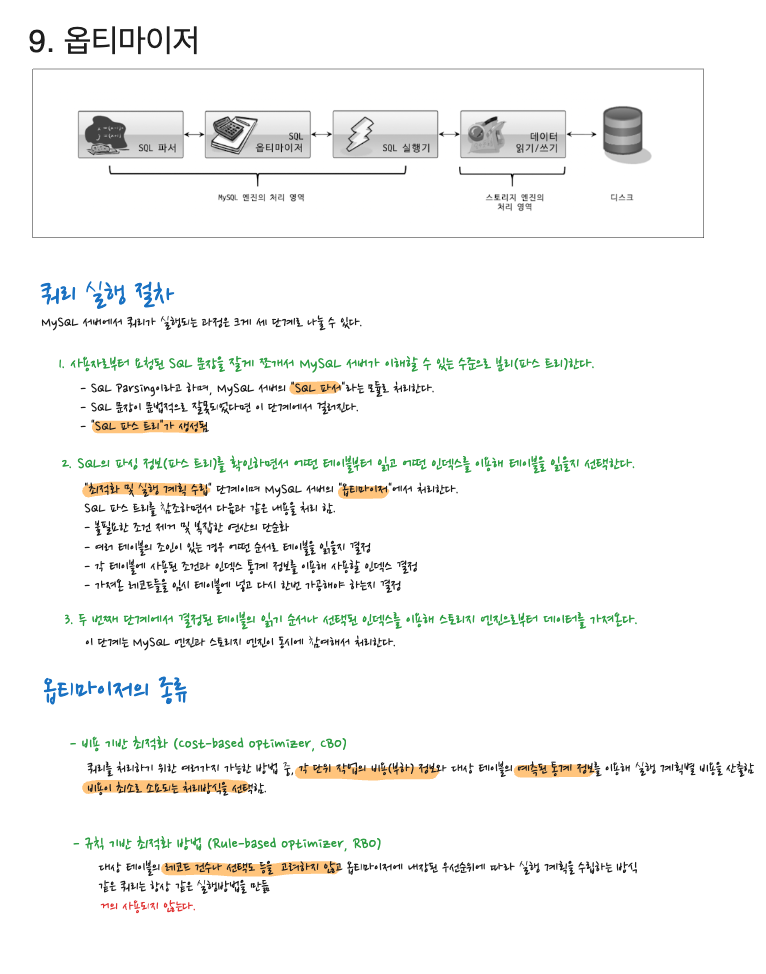 9. 옵티마이저
SQL 파서
SQL
옵티마이저
SQL 실행기
데이터
읽기/쓰기
MySQL 엔진의 처리 영역
스토리지 엔진의
처리 영역
디스크
쿼리 실행 절차
MySQL 서버에서 쿼리가 실행되는 과정은 크게 세 단계로 나눌 수 있다.
1. 사용자로부터 요청된 SQL 문장을 잘게 쪼개서 MySQL 서버가 이해할 수 있는 수준으로 분리(파스 트리)한다.
- SQL Parsing이라고 하며, MySQL 서버의 "SQL 파서"라는 모듈로 처리한다.
- SQL 문장이 문법적으로 잘못되었다면 이 단계에서 걸러진다.
- "SQL 파스 트리"가 생성됨
2. SQL의 파싱 정보(파스 트리)를 확인하면서 어떤 테이블부터 읽고 어떤 인덱스를 이용해 테이블을 읽을지 선택한다.
"최적화 및 실행 계획 수립" 단계이며 MySQL 서버의 "옵티마이저"에서 처리한다.
SQL 파스 트리를 참조하면서 다음과 같은 내용을 처리 함.
- 불필요한 조건 제거 및 복잡한 연산의 단순화
- 여러 테이블의 조인이 있는 경우 어떤 순서로 테이블을 읽을지 결정
- 각 테이블에 사용된 조건과 인덱스 통계 정보를 이용해 사용할 인덱스 결정
- 가져온 레코드들을 임시 테이블에 넣고 다시 한번 가공해야 하는지 결정
3. 두 번째 단계에서 결정된 테이블의 읽기 순서나 선택된 인덱스를 이용해 스토리지 엔진으로부터 데이터를 가져온다.
이 단계는 MySQL 엔진과 스토리지 엔진이 동시에 참여해서 처리한다.
옵티마이저의 종류
- 비용 기반 최적화 (Cost-based optimizer, CBO)
쿼리를 처리하기 위한 여러가지 가능한 방법 중, 각 단위 작업의 비용(부하) 정보와 대상 테이블의 예측된 통계 정보를 이용해 실행 계획별 비용을 산출함
비용이 최소로 소요되는 처리방식을 선택함.
- 규칙 기반 최적화 방법 (Rule-based optimizer, RBO)
대상 테이블의 레코드 건수나 선택도 등을 고려하지 않고 옵티마이저에 내장된 우선순위에 따라 실행 계획을 수립하는 방식
같은 쿼리는 항상 같은 실행방법을 만듦
거의 사용되지 않는다.